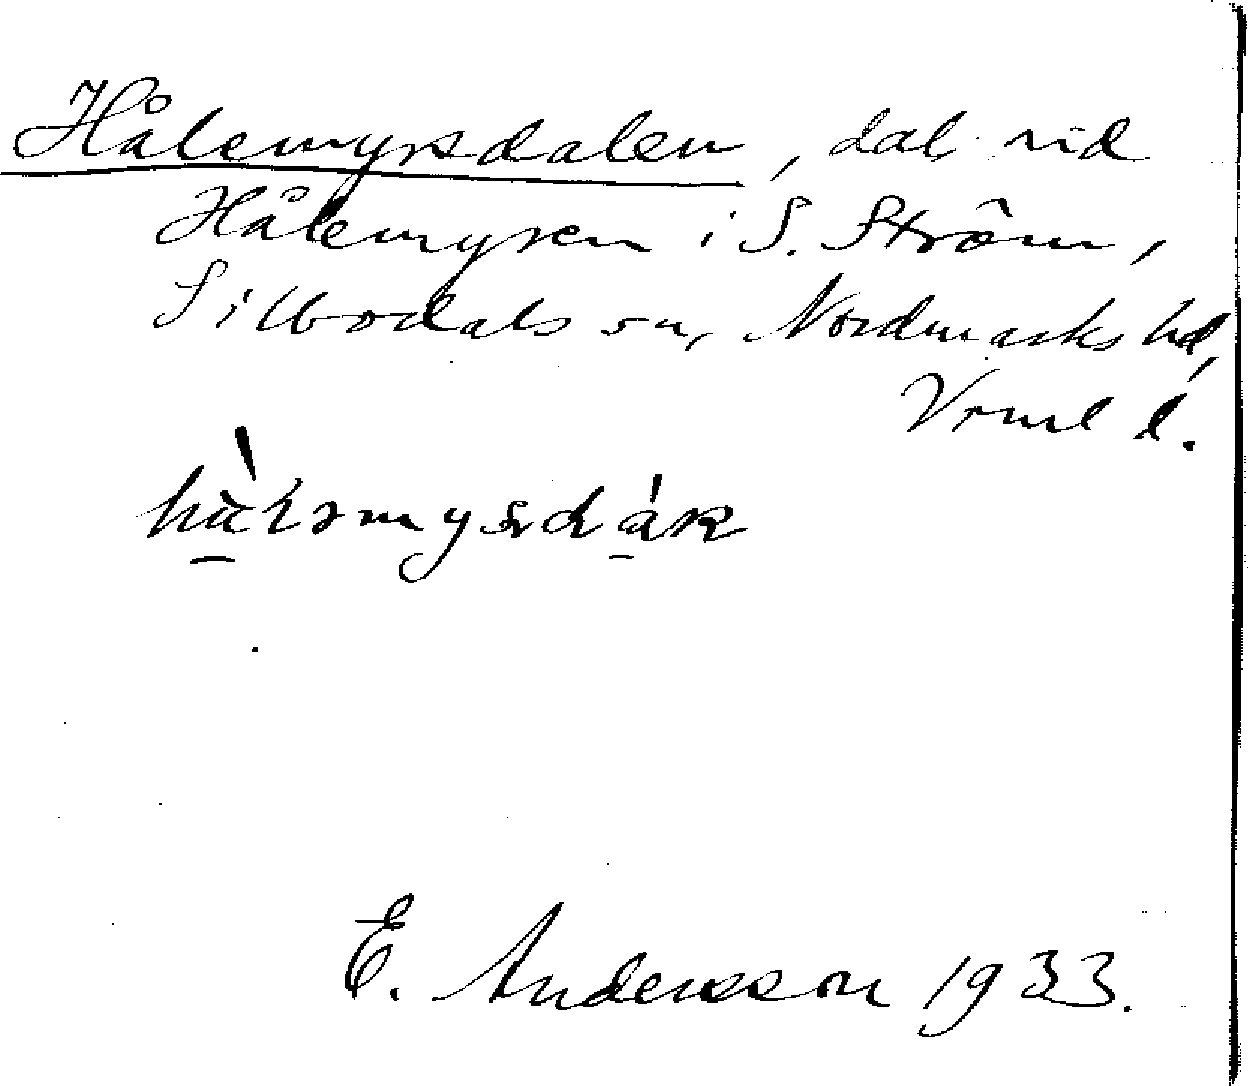 Hålemyrsdalen, dal vid
Hålemyren i S. Ström,
Silbodals sn, Nordmarks hd,
Vrml l.
E. Andersson 1933.